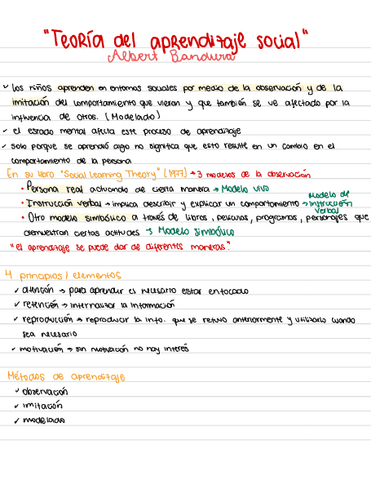 "Teoría del aprendizaje social"
Albert Bandura
✓ los niños aprenden en entornos sociales por medio de la observación y de la
imitación del comportamiento que vieron y que también se ve afectado por la
influencia de otros. (Modelado)
✓ el estado mental afecta este proceso de aprendizaje
✓ Solo porque se aprendió algo no significa que esto resulte en un cambio en el
comportamiento de la persona
En su libro "Social Learning Theory" (1977) → 3 modelos de la observación
• Persona real actuando de cierta manera → Modelo vivo
• Instrucción verbal → implica describir y explicar un comportamiento → Modelo de instrucción verbal
• Otro modelo simbólico a través de libros, películas, programas, personajes que
demuestran ciertas actitudes → Modelo simbólico
"el aprendizaje se puede dar de diferentes maneras."
4 principios/elementos
✓ atención → para aprender es necesario estar enfocado
✓ retención → internalizar la información
✓ reproducción → reproducir la info. que se retuvo anteriormente y utilizarla cuando
sea necesario
✓ motivación → sin motivación no hay interés
Métodos de aprendizaje
✓ observación
✓ imitación
✓ modelado